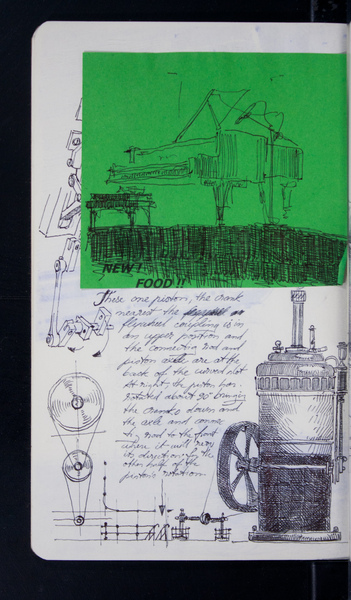 NEW !
FOOD !!
These one piston, the crank
nearest the
flywheel coupling is in
an upper position and
the connecting rod and
piston are at the
back of the curved slot
At right, the piston has
rotated about 90° bringing
the crank down and
the axle and connec
ting rod to the front
where it will
its direction for the
other half of the
piston's rotation